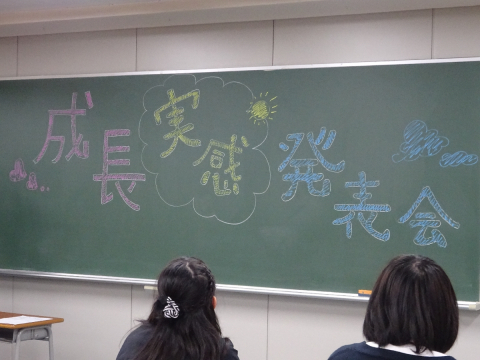 成長実感発表会